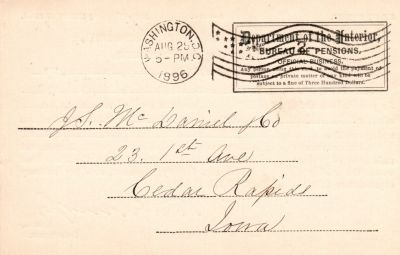 WASHINGTON, D.C.
AUG 25
5-PM
1896
Department of the Interior,
BUREAU OF PENSIONS.
OFFICIAL BUSINESS.
Any person using this card to avoid the payment of
postage on private matter of any kind will be
subject to a fine of Three Hundred Dollars.
J.S. McDaniel & Co
23. 1st Ave
Cedar Rapids
Iowa